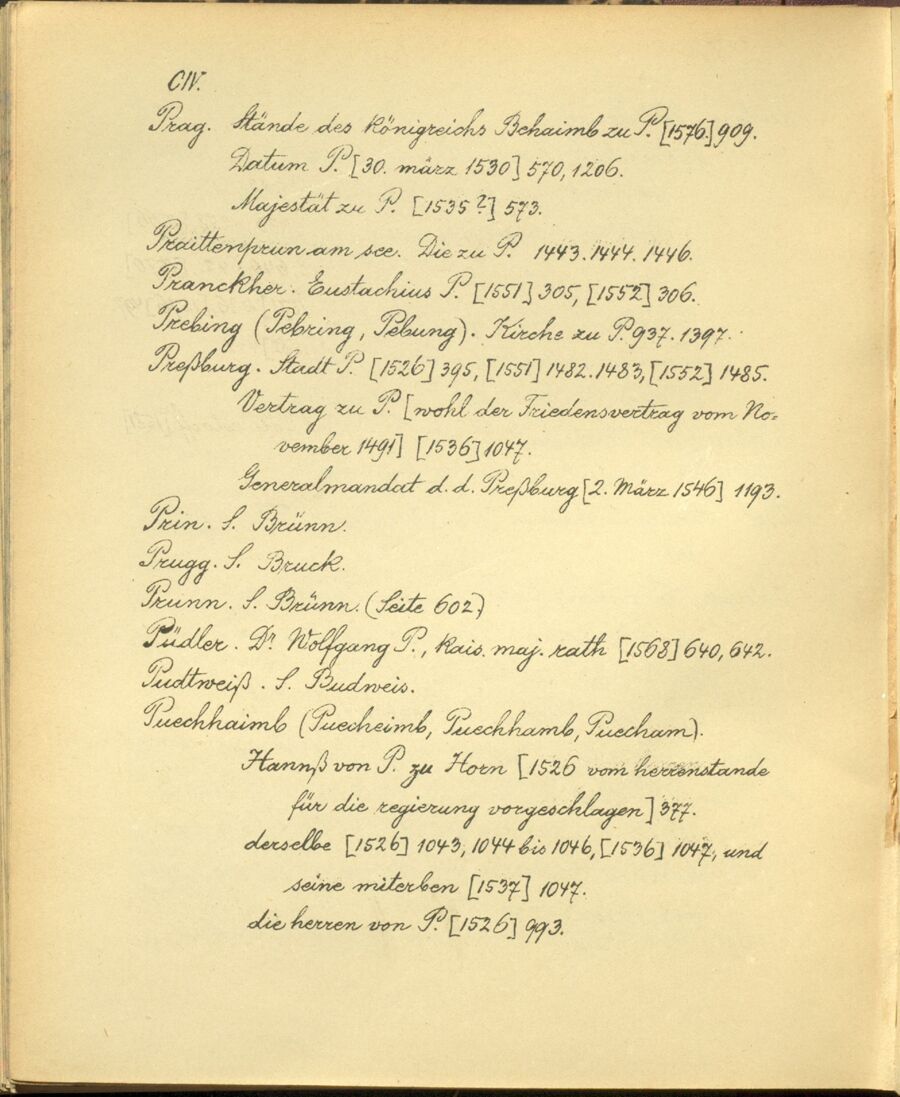 CIV.
Prag. Stände des königreichs Behaimb zu P. [1576.] 909.
Datum P. [30. märz 1530] 570, 1206.
Majestät zu P. [1535?] 573.
Praittenprun am see. Die zu P. 1443. 1444. 1446.
Pranckher. Eustachius P. [1551] 305, [1552] 306.
Prebing (Pebring, Pebung). Kirche zu P. 937. 1397.
Preßburg. Stadt P. [1526] 395, [1551] 1482. 1483, [1552] 1485.
Vertrag zu P. [wohl der Friedensvertrag vom No=
vember 1491] [1536] 1047.
Generalmandat d. d. Preßburg [2. März 1546] 1193.
Prin. S. Brünn.
Prugg. S. Bruck.
Prunn. S. Brünn. (Seite 602)
Püdler. Dr Wolfgang P., kais. maj. rath [1568] 640, 642.
Pudtweiß. S. Budweis.
Puechhaimb (Puecheimb, Puechhamb, Puecham).
Hannß von P. zu Horn [1526 vom herrenstande
für die regierung vorgeschlagen] 377.
derselbe [1526] 1043, 1044 bis 1046, [1536] 1047, und
seine miterben [1537] 1047.
die herren von P. [1526] 993.